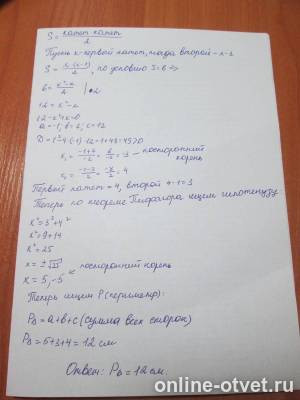 S = катет·катет / 2
Пусть x-первый катет, тогда второй - x-1
S = x·(x-1) / 2, по условию S=6 =>
6 = x²-x / 2 | ·2
12 = x²-x
12-x²+x=0
D = 1²-4·(-1)·12=1+48=49>0
x₁ = = -3 - посторонний
корень
x₂ = = 4
Первый катет = 4, второй 4-1=3
Теперь по теореме Пифагора ищем гипотенузу:
x²=3²+4²
x²=9+14
x²=25
x=±√25
x=5,-5 посторонний корень
Теперь ищем P(периметр):
P∆=a+b+c (сумма всех сторон)
P∆=5+3+4=12 см
Ответ: P∆=12 см.
online-otvet.ru